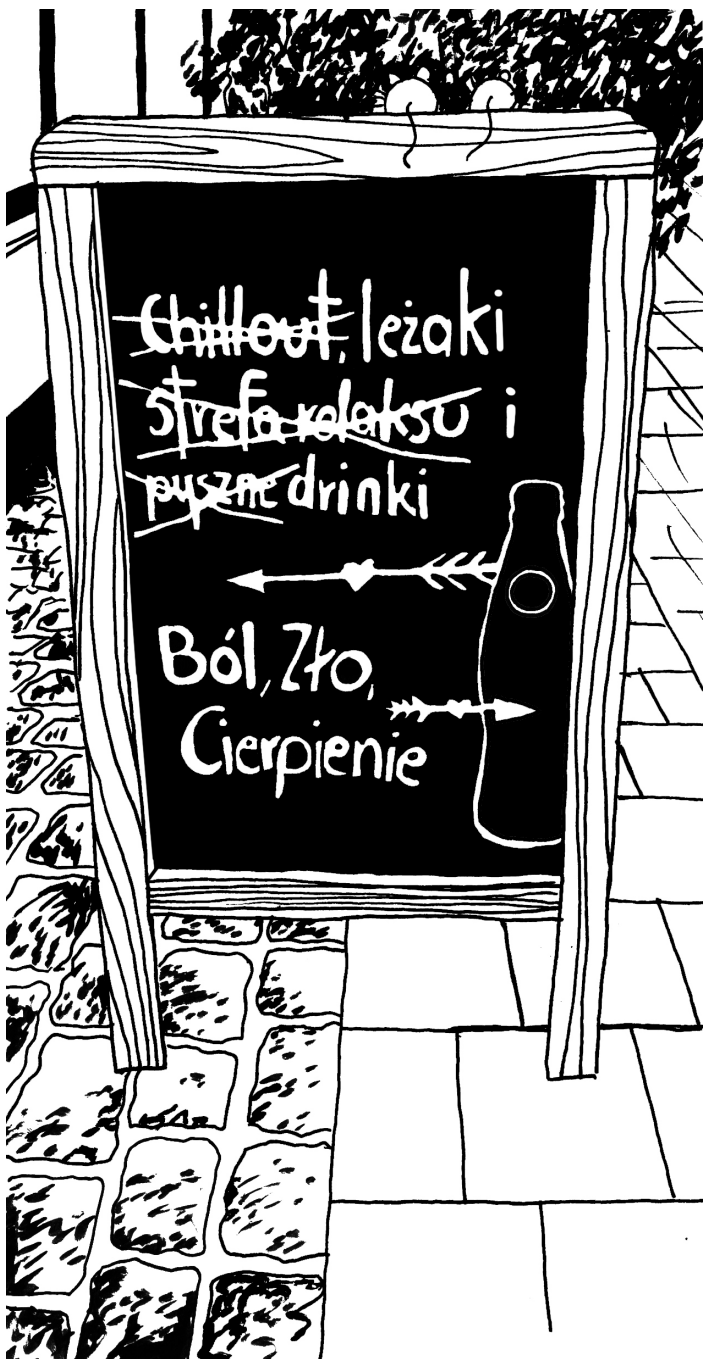 Chillout, leżaki
strefa relaksu i
pyszne drinki
Ból, Zło,
Cierpienie